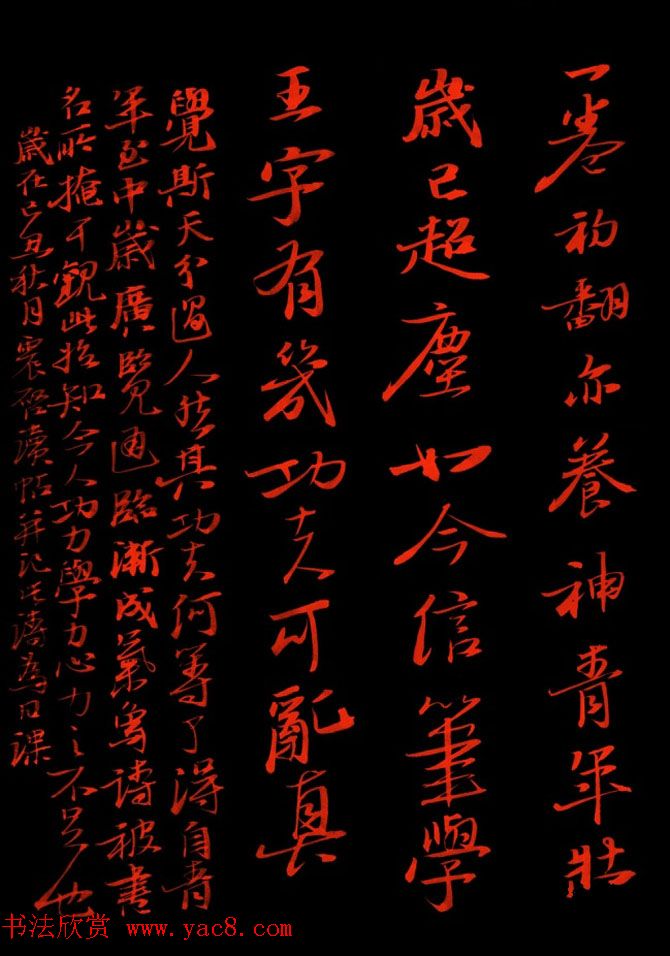 一卷初翻亦養神青年壯
歲已超塵如今信筆學
王字有幾功夫可亂真
覺斯天分過人然其功夫何等了得自青
年至中歲廣覽通臨漸成氣寫詩被書
名所掩耳觀此始知今人功力學力心力之不足也
歲在己丑秋月震 讀帖并記此詩為日課
书法欣赏 www.yac8.com